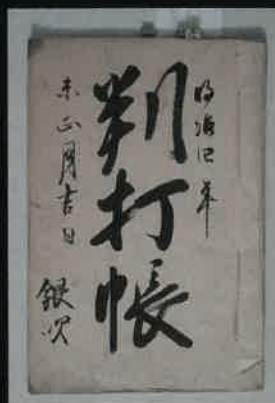 明治四年
判打帳
未正月吉日
銀吹